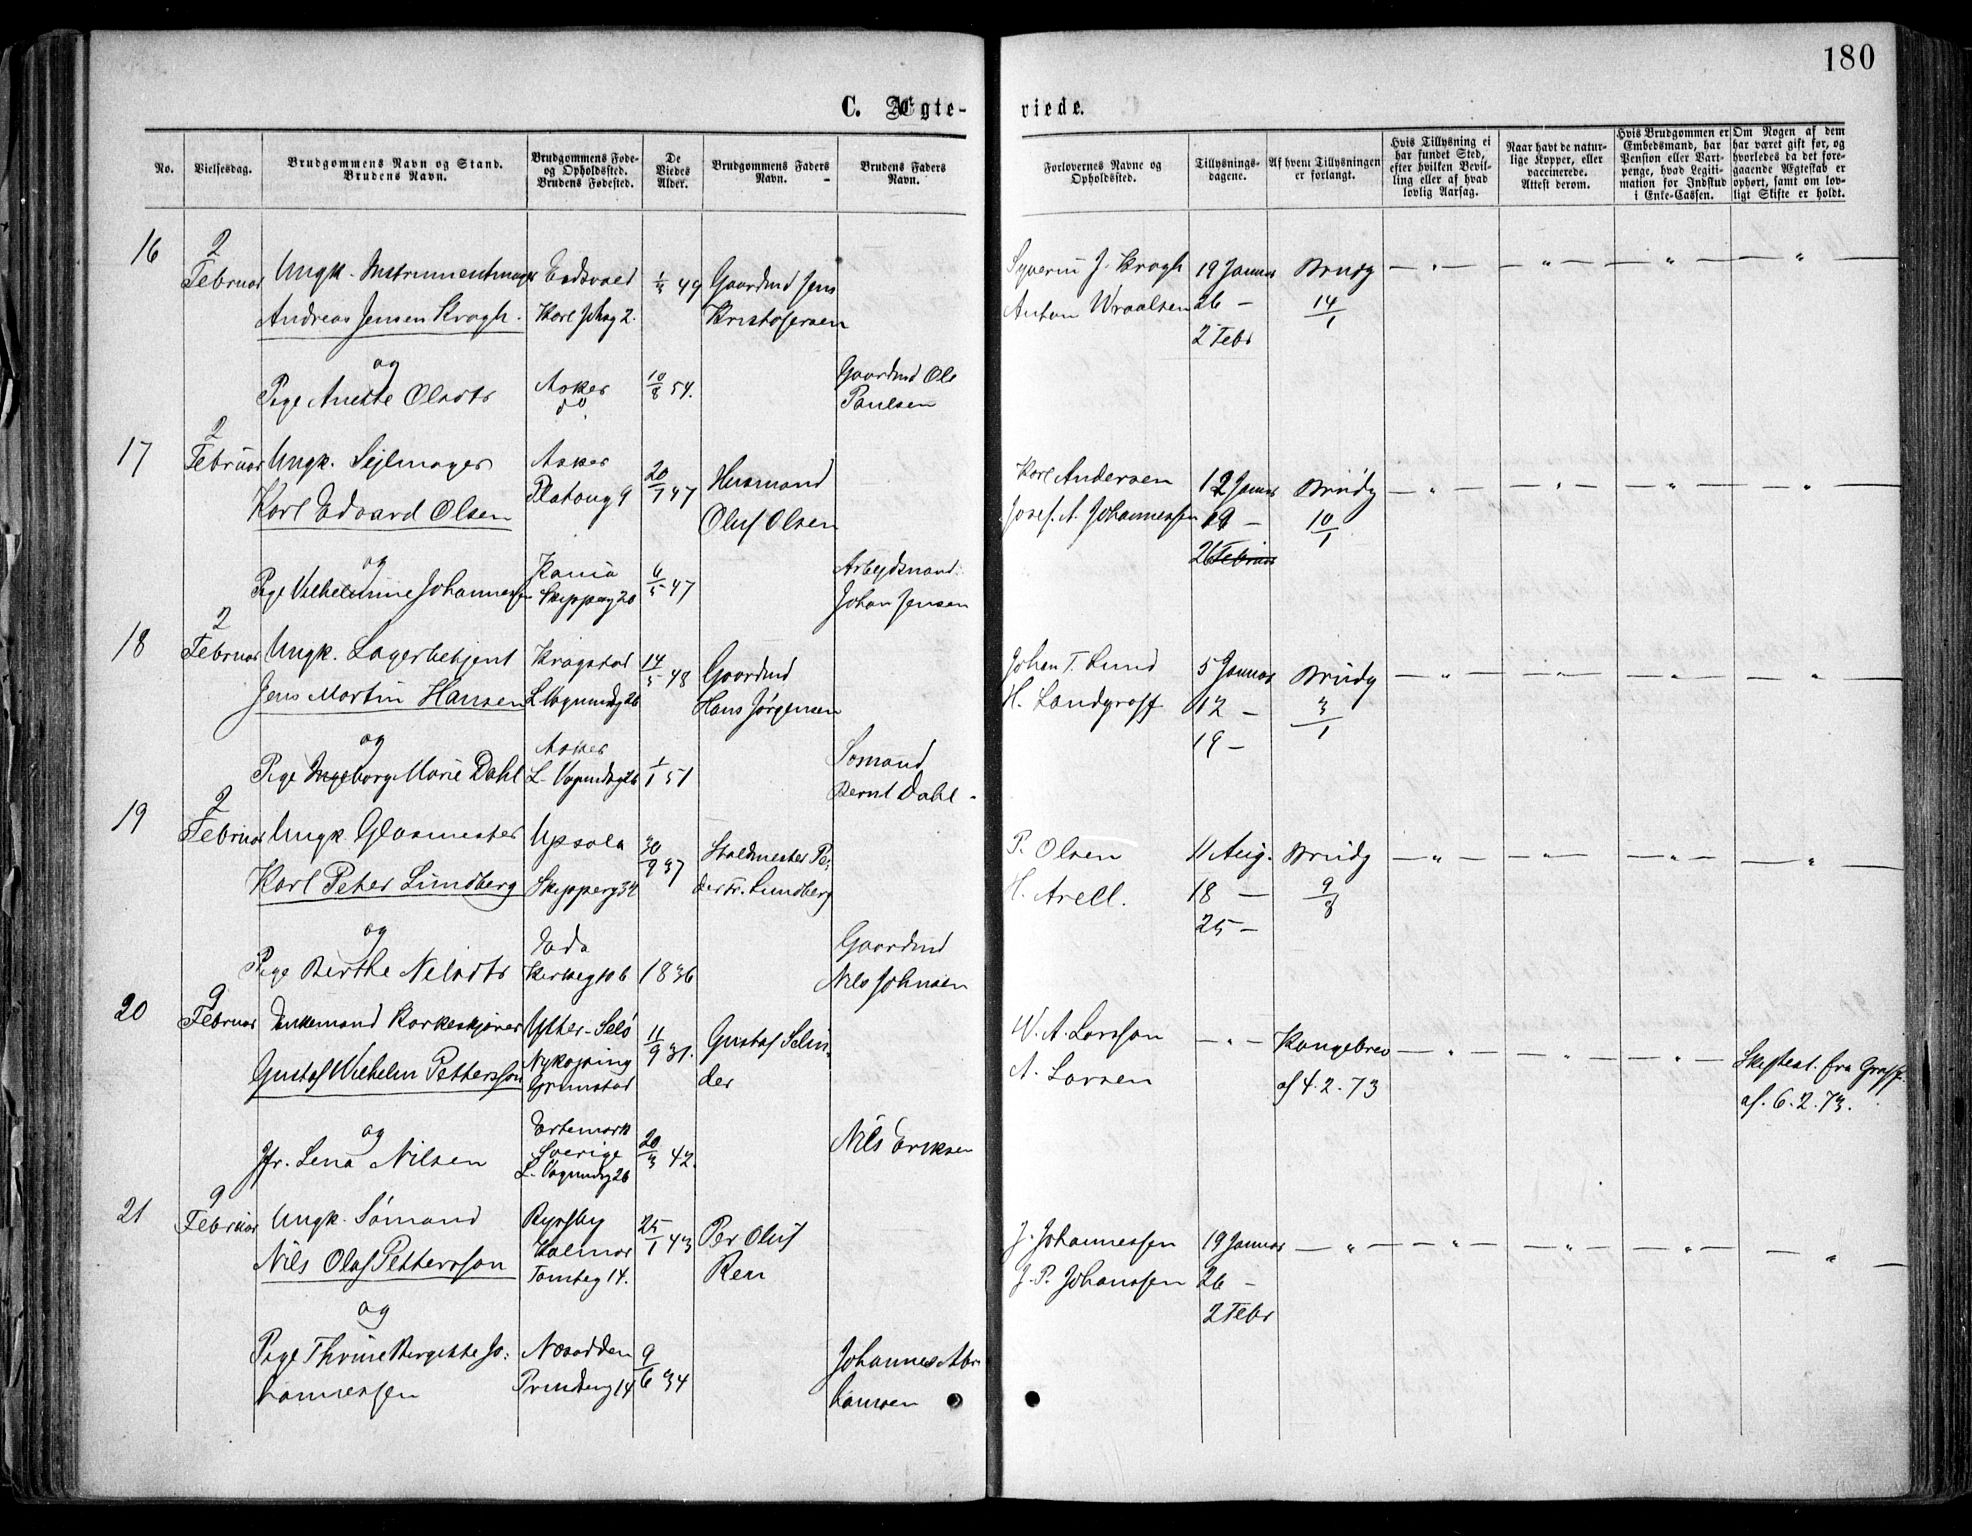 180
C. Ægte-
viede.
No.
Vielsesdag.
Brudgommens Navn og Stand.
Brudens Navn.
Brudgommens Føde-
og Opholdssted.
Brudens Fødested.
De
Viedes
Alder.
Brudgommens Faders
Navn.
Brudens Faders
Navn.
Forlovernes Navne og
Opholdssted.
Tillysnings-
dagene.
Af hvem Tillysningen
er forlangt.
Hvis Tillysning ei
har fundet Sted,
efter hvilken Bevil-
ling eller af hvad
lovlig Aarsag.
Naar havt de natur-
lige Kopper, eller
vaccinerede.
Attest derom.
Hvis Brudgommen er
Embedsmand, har
Pension eller Vart-
penge, hvad Legiti-
mation for Indskud
i Enke-Cassen.
Om Nogen af dem
har været gift før, og
hvorledes da det fore-
gaaende Ægteskab er
ophørt, samt om lov-
ligt Skifte er holdt.
16
2
Februar
Ungk. Instrumentmager
Andreas Jensen Kragh.
og
Pige Anette Olsdtr
Eidsvold
Karl Johsg 2.
Asker
do.
49
10/8 54.
Gaardmd Jens
Kristofersen
Gaardmd Ole
Paulsen
Syverin J. Kragh
Anton Wraalsen
19 Januar
26 —
2 Febr
Brudg
14/1
17
2
Februar
Ungk. Sejlmager
Karl Edvard Olsen
og
Pige Vilhelmine Johannessen
Asker
Platoug 9
Kania
Skipperg 20
20/7 47
6/5 47
Husmand
Oluf Olsen
Arbejdsmand
Johan Jensen
Karl Andersen
Josef. A. Johannessen
12 Januar
19 —
26 Februar
Brudg
10/1
18
2
Februar
Ungk. Lagerbetjent
Jens Martin Hansen
og
Pige Ingeborg Marie Dahl
Kragstad
L. Vognmdsg 26
Asker
L. Vognmdsg 26
14/5 48
1/1 51
Gaardmd
Hans Jørgensen
Sømand
Bernt Dahl
Johan T. Lund
H. Landgraff
5 Januar
12 —
19 —
Brudg
3/1
19
2
Februar
Ungk. Glasmester
Karl Peter Lundberg
og
Pige Berthe Nelsdtr
Upsala
Skipperg 34
Eda
30/9 37
1836
Staldmester Pe-
der Fr. Lundberg
Gaardmd
Nils Johnsen
P. Olsen
H. Arell.
11 Aug.
18 —
25 —
Brudg
9/8
20
9
Februar
Enkemand Korkeskjærer
Gustaf Wilhelm Pettersson
og
Jfr. Lena Nilsen
Ytter-Selö
Nykøping
Grimstad
Ertemark
Sverige
L. Vognmdsg 26
11/9 31.
20/3 42.
Gustaf Selin-
der
Nils Eriksen
W. A. Larsson
A. Larsen
Kongebrev
af 4. 2. 73
Skifteat. fra Graff.
af. 6. 2. 73.
21
9
Februar
Ungk. Sømand
Nils Olaf Pettersson
og
Pige Thrine Bergitte Jo-
hannessen
Ryssby
Kalmar
Tomteg 14.
Næsodden
25/1 43
9/6 34
Per Oluf
Ren
Johannes Abra-
hamsen
J. Johannessen
J. P. Johanssen
19 Januar
26 —
2 Febr